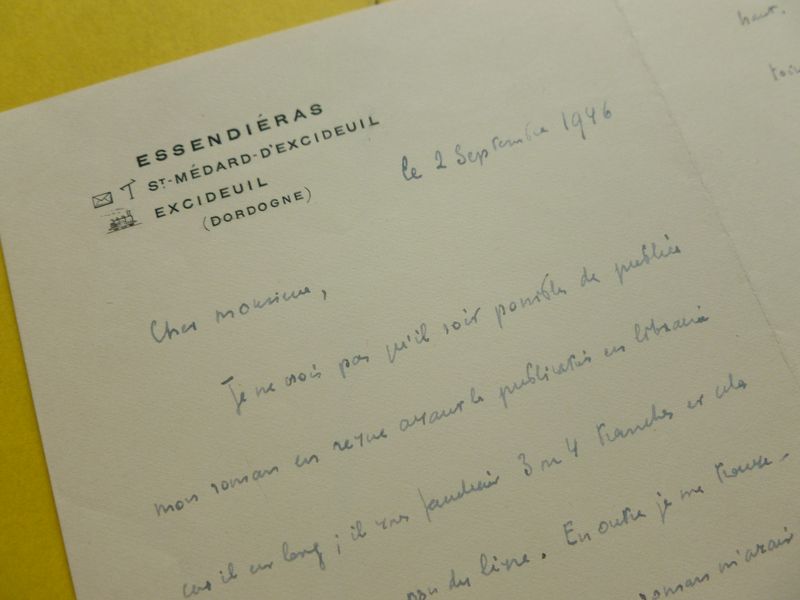 ESSENDIÉRAS
ST-MÉDARD-D'EXCIDEUIL
EXCIDEUIL
(DORDOGNE)
le 2 Septembre 1946
Cher monsieur,
Je ne crois pas qu'il soit possible de publier
mon roman en revue avant la publication en librairie
car il est long ; il vous faudrait 3 ou 4 tranches et cela
du livre. En outre je me trouve-
roman m'avait
haut.